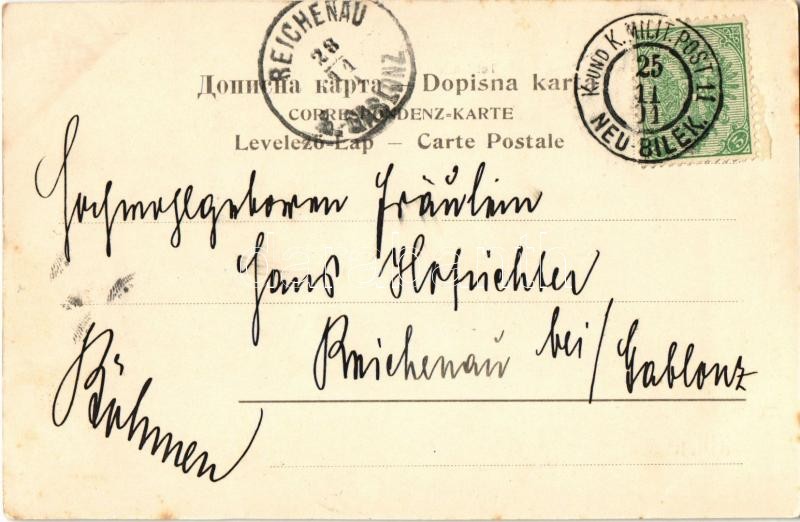 REICHENAU
28
11
B. GABLONZ
K. UND K. MILIT. POST II
25
11
01
NEU-BILEK.
5
Дописна карта – Dopisna karta
CORRESPONDENZ-KARTE
Levelező-Lap – Carte Postale
Hochwohlgeboren Fräulein
Hans Hofrichter
Reichenau bei/Gablonz
Böhmen